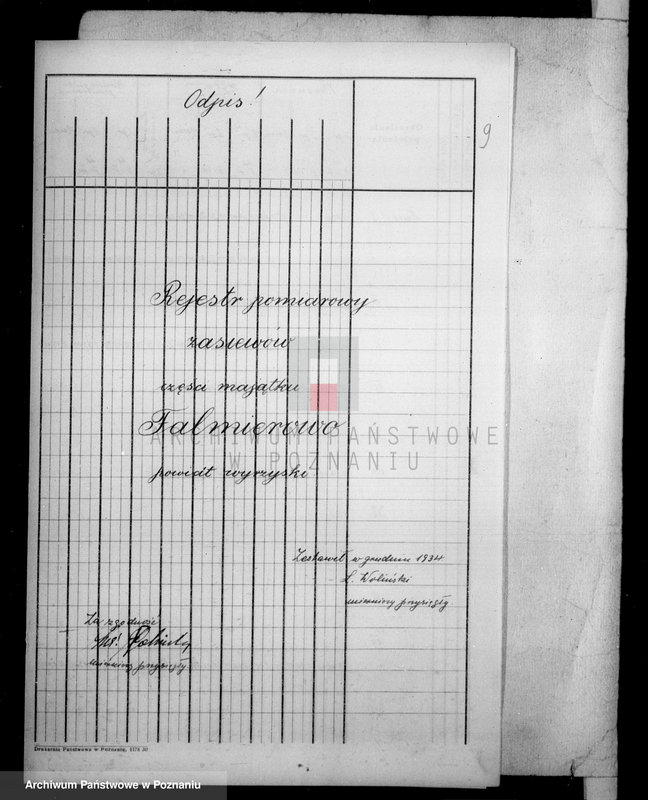 Odpis!
9
Rejestr pomiarowy
zasiewów
części majątku
Falmierowo
powiat wyrzyski
Zestawił w grudniu 1934
L. Woliński
mierniczy przysięgły
Za zgodność
mierniczy przysięgły
Drukarnia Państwowa w Poznaniu, 4178 30
ARCHIWUM PAŃSTWOWE
W POZNANIU
Archiwum Państwowe w Poznaniu